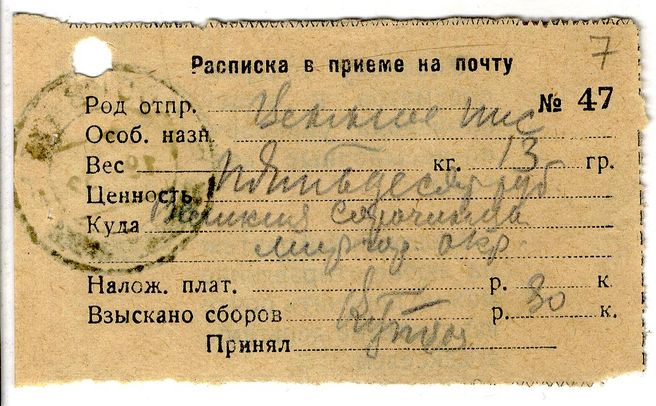 7
Расписка в приеме на почту
Род отпр. Ценное пис № 47
Особ. назн.
Вес кг. 13 гр.
Ценность пятьдесят руб
Куда Великия Сорочинцы
Миргор. окр.
Налож. плат. р. к.
Взыскано сборов р. 30 к.
Принял